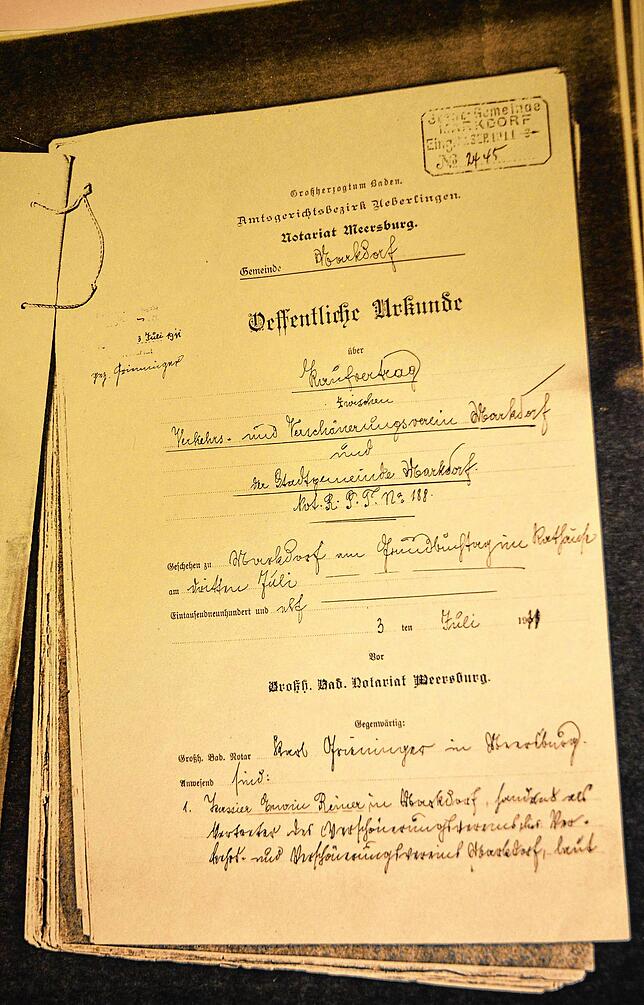 Gemeinde
MARKDORF
Eing. SEP. 1911
No 2445
Großherzogtum Baden.
Amtsgerichtsbezirk Ueberlingen.
Notariat Meersburg.
Gemeinde Markdorf
Oeffentliche Urkunde
3 Juli 1911
über
gez. Grieninger
Kaufvertrag
zwischen
Verkehrs- und Verschönerungsverein Markdorf
und
der Stadtgemeinde Markdorf.
Not. R. P. T. No 188.
Geschehen zu Markdorf am Grundbuchtag im Rathause
am dritten Juli
Eintausendneunhundert und elf
3 ten Juli 1911
Vor
Großh. Bad. Notariat Meersburg.
Gegenwärtig:
Großh. Bad. Notar Karl Grieninger in Meersburg.
Anwesend sind:
1. Kassier Erwin Reiner in Markdorf, handend als
Vertreter des Verschönerungsvereins des Ver-
kehrs- und Verschönerungsvereins Markdorf, laut